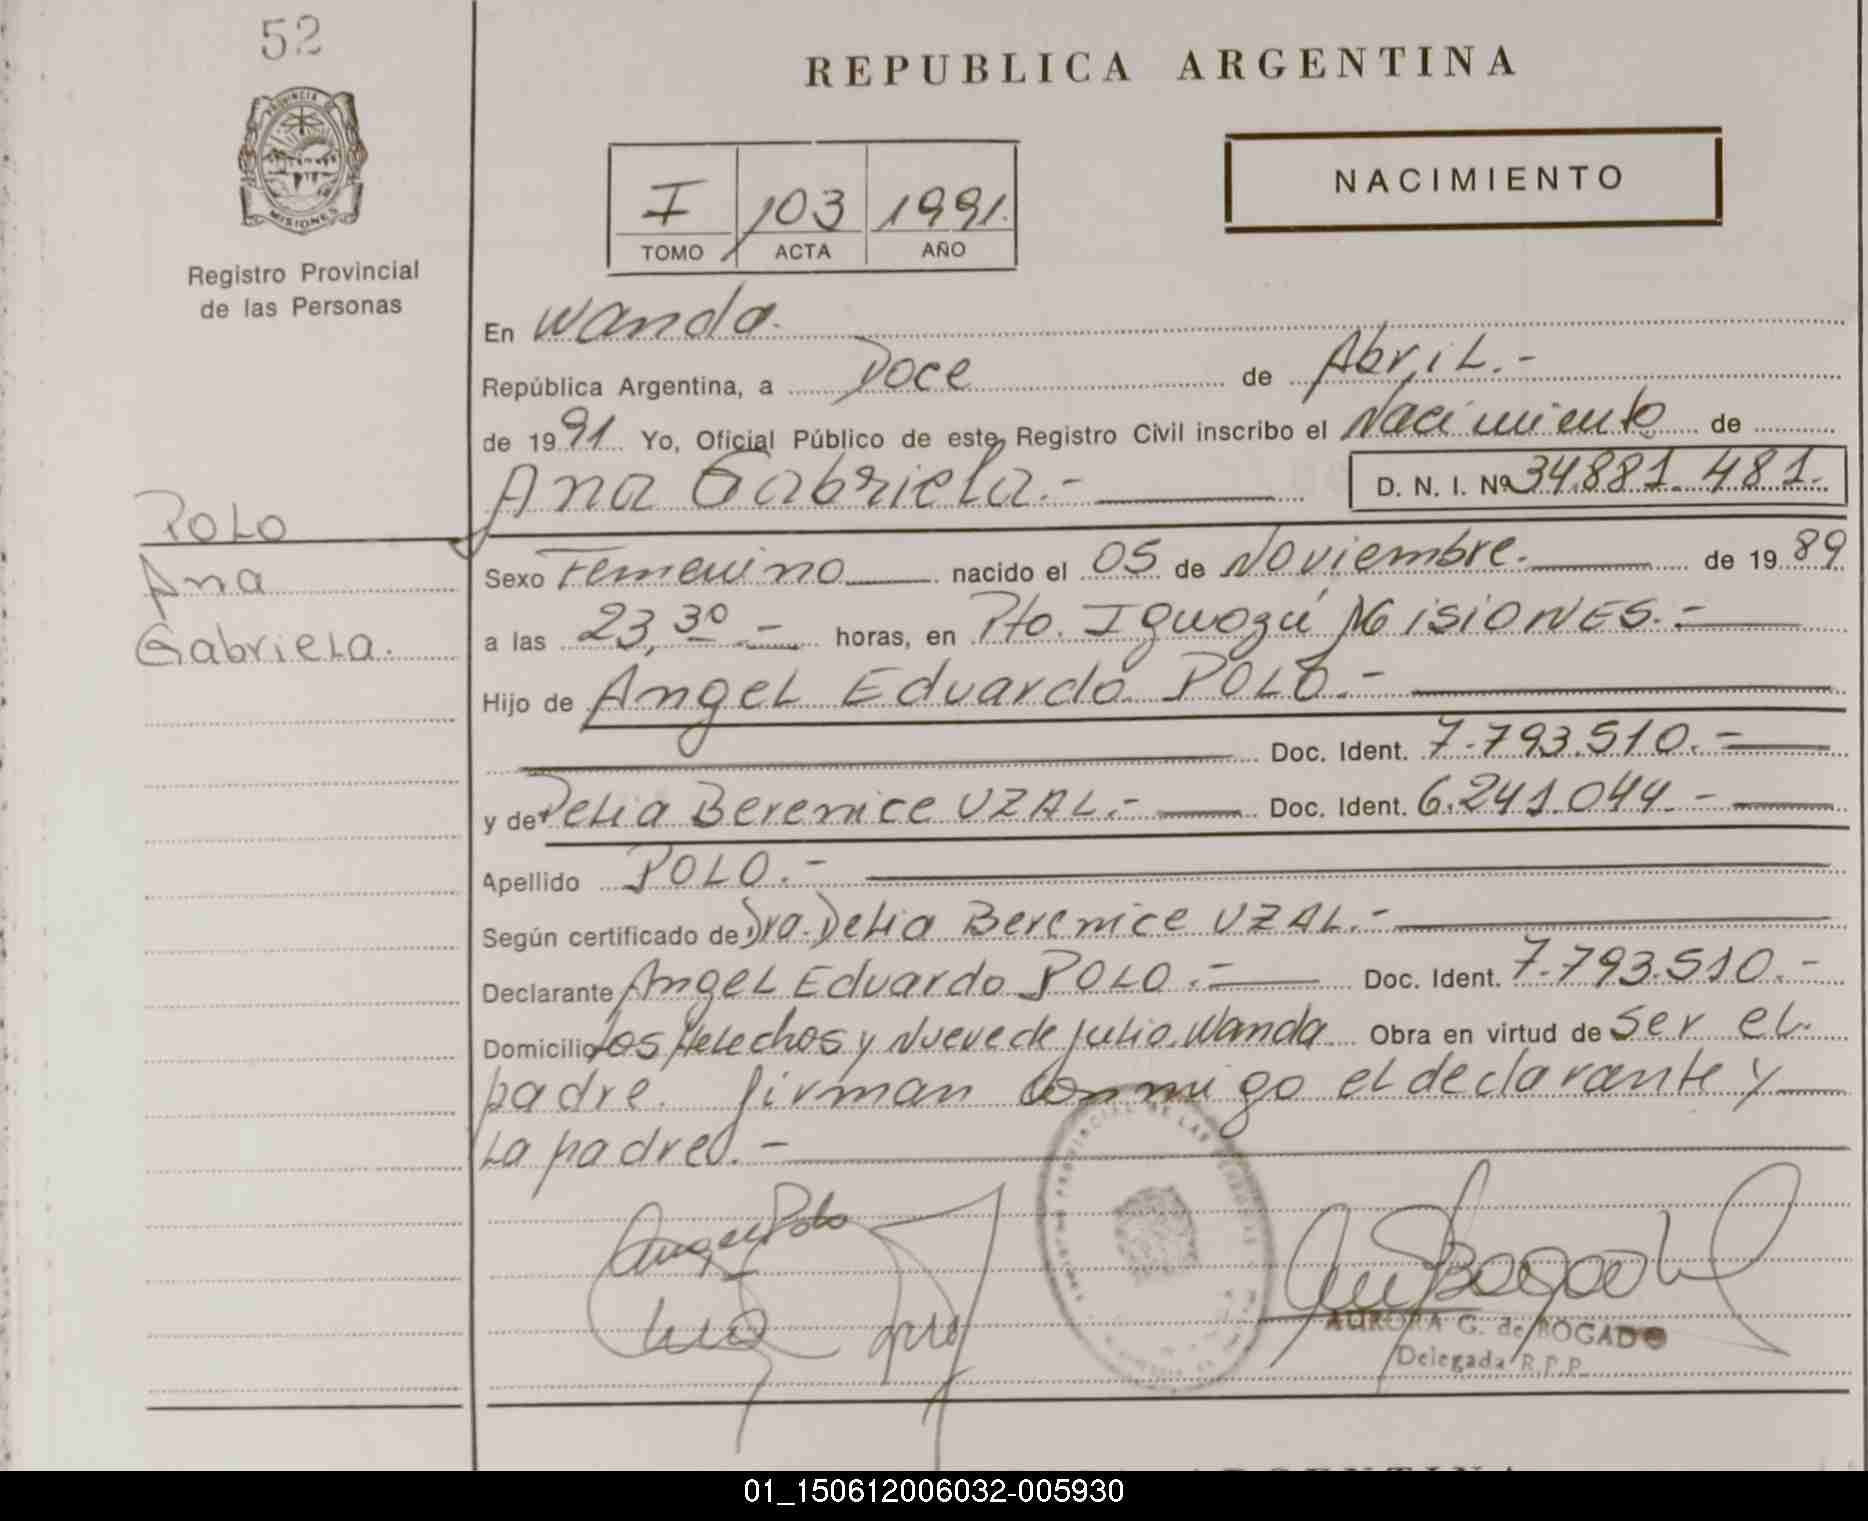 52
REPUBLICA ARGENTINA
PROVINCIA DE
MISIONES
Registro Provincial
de las Personas
NACIMIENTO
I 103 1991.
TOMO ACTA AÑO
En Wanda.
República Argentina, a Doce de Abril.-
de 1991 Yo, Oficial Público de este Registro Civil inscribo el Nacimiento de
Ana Gabriela.- D. N. I. Nº 34.881.481.-
POLO
Ana
Gabriela.
Sexo Femenino nacido el 05 de Noviembre. de 1989
a las 23,30.- horas, en Pto. Iguazú MISIONES.-
Hijo de Angel Eduardo POLO.-
Doc. Ident. 7.793.510.-
y de Delia Berenice UZAL.- Doc. Ident. 6.241.044.-
Apellido POLO.-
Según certificado de Dra. Delia Berenice UZAL.-
Declarante Angel Eduardo POLO.- Doc. Ident. 7.793.510.-
Domicilio Los Helechos y Nueve de Julio. Wanda Obra en virtud de ser el
padre. firman conmigo el declarante y
la padre.-
Angel Polo
AURORA G. de BOGADO
Delegada R.P.P.
01_150612006032-005930